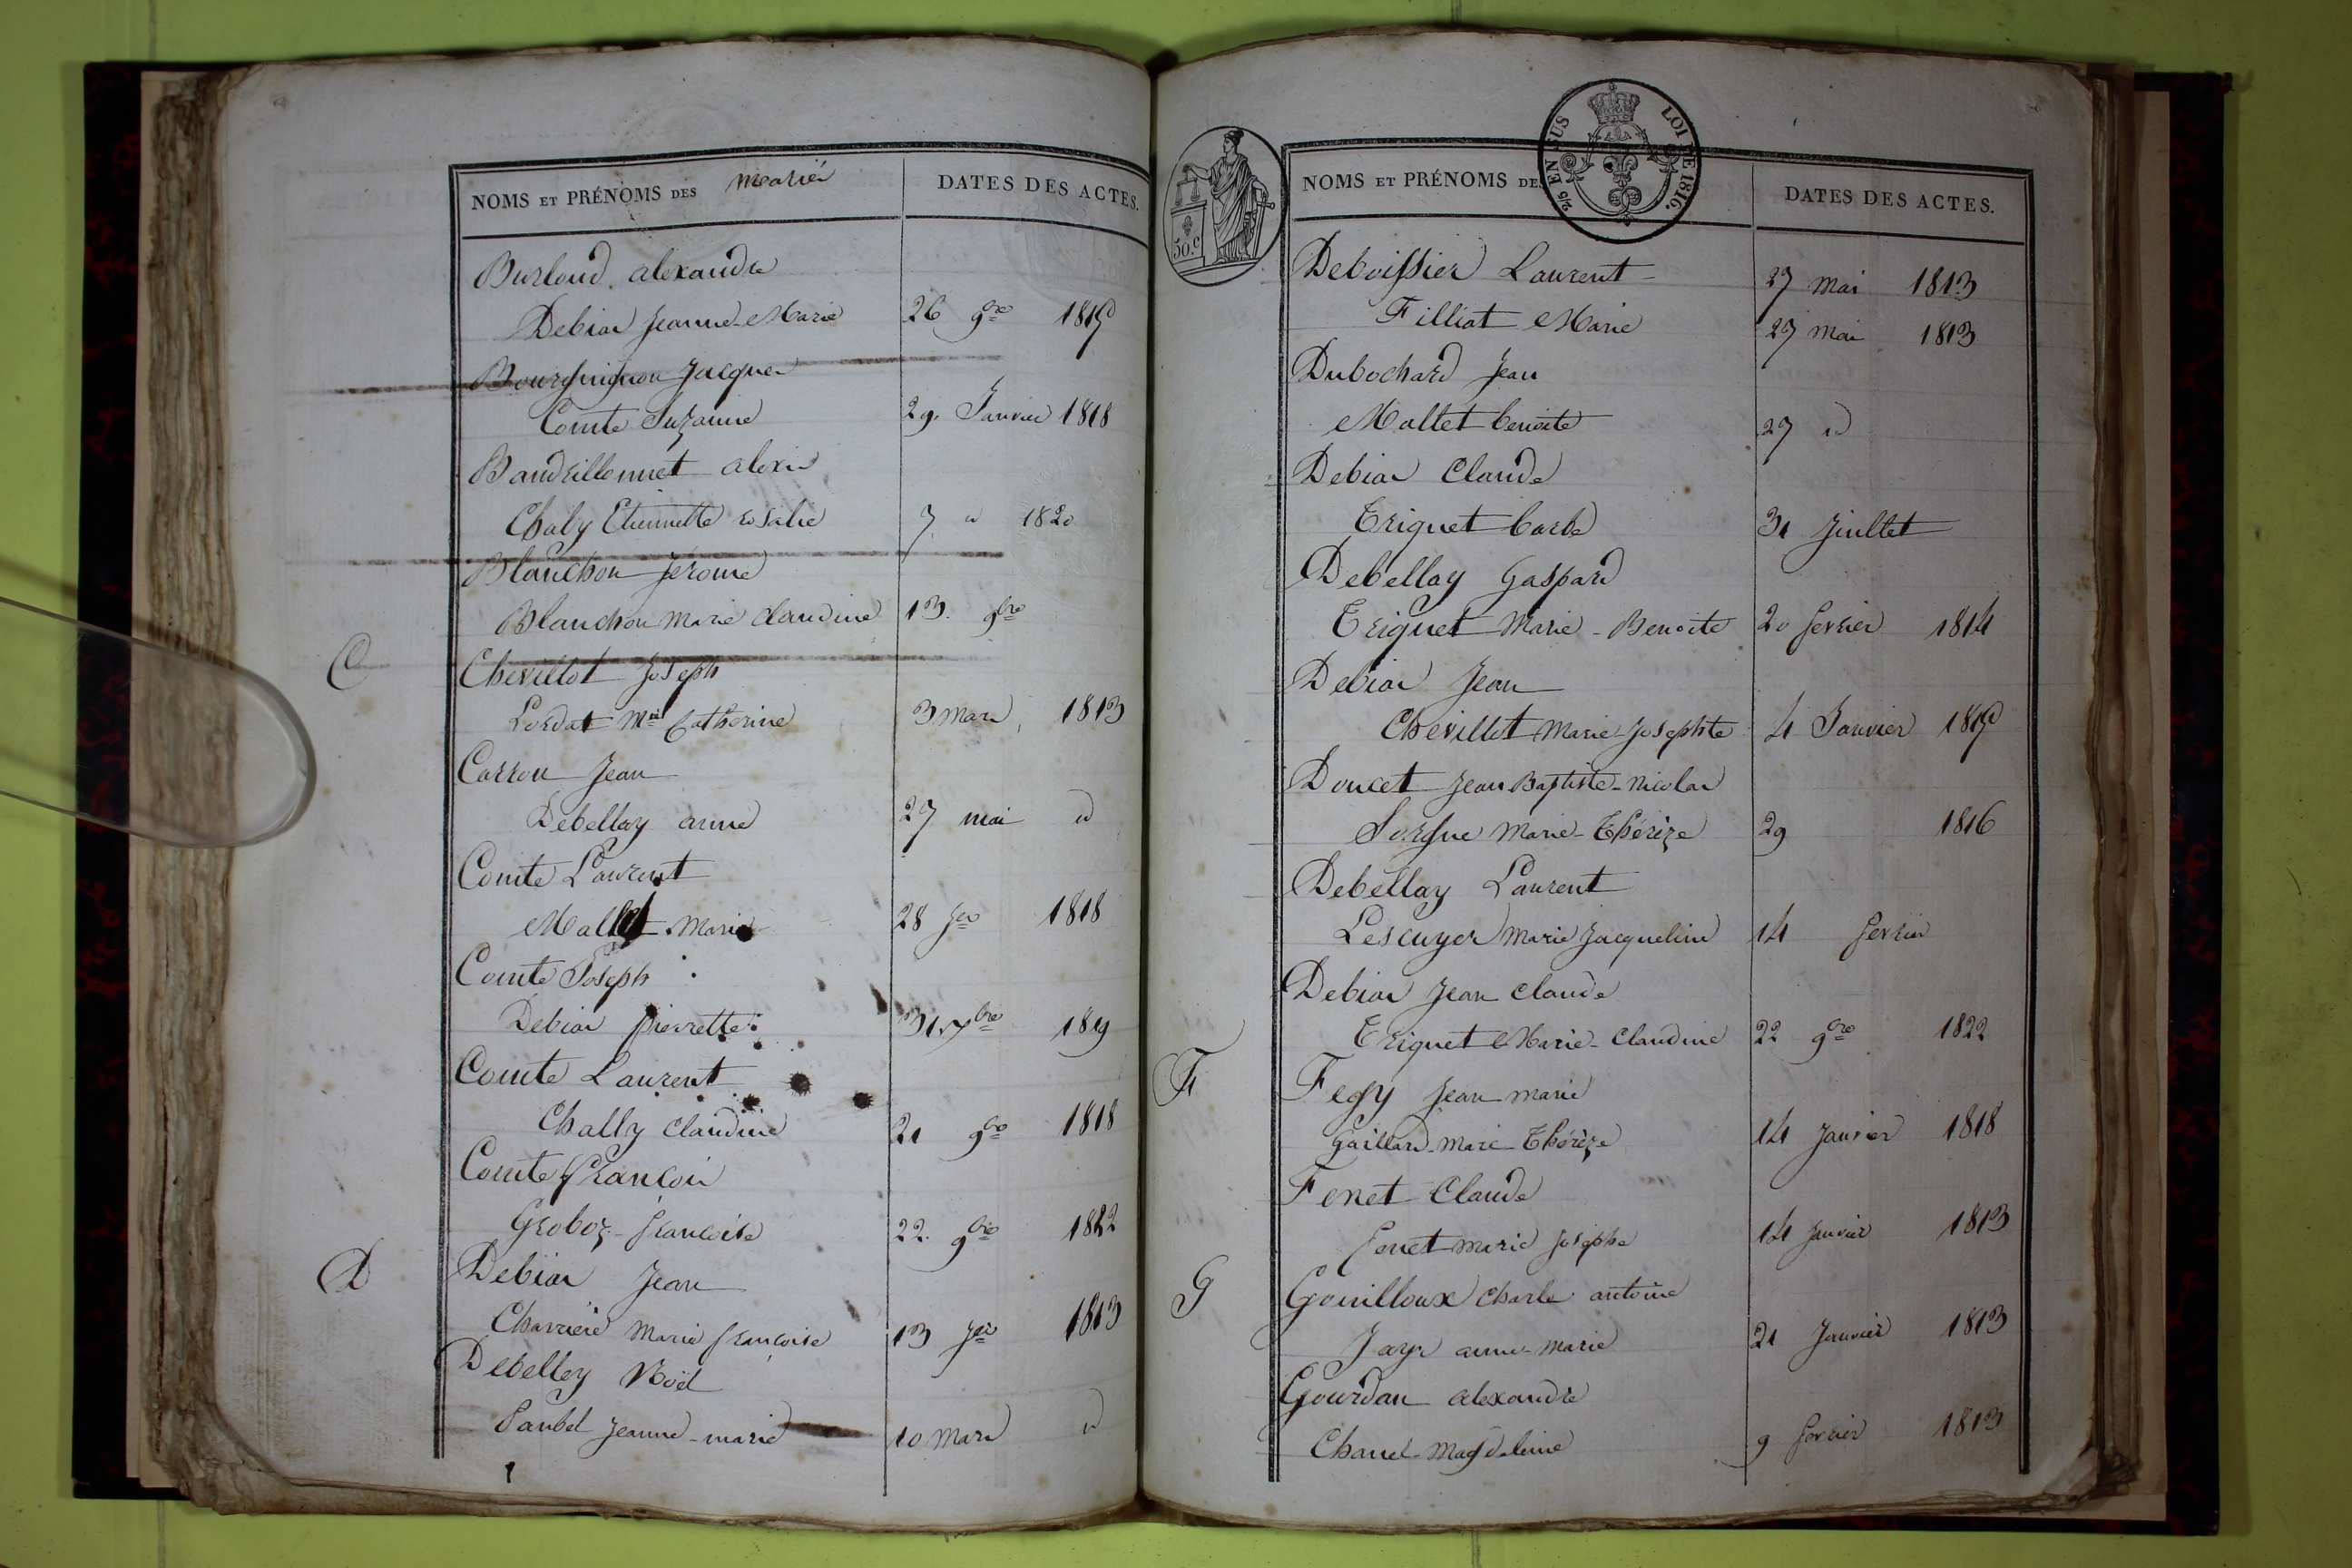 NOMS ET PRÉNOMS DES mariés DATES DES ACTES.
Burloud alexandre
Debias Jeanne-Marie 26 9bre 1819
Bourguignon Jacques
Comte Suzanne 29 Janvier 1818
Baudrillonnet alexis
Chaly Etiennette rosalie 7 d 1820
Blanchon Jérome
Blanchon Marie claudine 13. 9bre
C
Chevillot Joseph
Lordat Mie Catherine 3 Mars 1813
Carron Jean
Debellay anne 27 mai d
Comte Laurent
Mallet Marie 28 Jer 1818
Comte Joseph
Debias pierrette 31 Xbre 1819
Comte Laurent
Chally Claudine 21 9bre 1818
Comte François
Groboz françoise 22. 9bre 1822
D
Debias Jean
Charriere Marie françoise 13 Jer 1813
Debelley Noël
Paubel Jeanne-marie 10 Mars d
50.c
EN SUS LOI DE 1816.
NOMS ET PRÉNOMS DES DATES DES ACTES.
Deboissier Laurent 27 Mai 1813
Filliat Marie 27 Mai 1813
Dubochard Jean
Mallet benoite 27 d
Debias Claude
Triquet barbe 31 Juillet
Debellay Gaspard
Triquet Marie-Benoite 20 fevrier 1814
Debias Jean
Chevillot Marie-Josephte 4 Janvier 1819
Doucet Jean Baptiste-Nicolas
Sorgue Marie-Thérèze 29 1816
Debellay Laurent
Lescuyer Marie Jacqueline 14 fevrier
Debias Jean Claude
Triquet Marie-Claudine 22 9bre 1822
F
Fegy Jean marie
Gaillard Marie-Thérèze 14 Janvier 1818
Fenet Claude
fenet Marie Josephe 14 Janvier 1813
G
Gouilloux Charle antoine
Jayr anne-marie 21 Janvier 1813
Gourdan alexandre
Chanel-Magdeleine 9 fevrier 1813